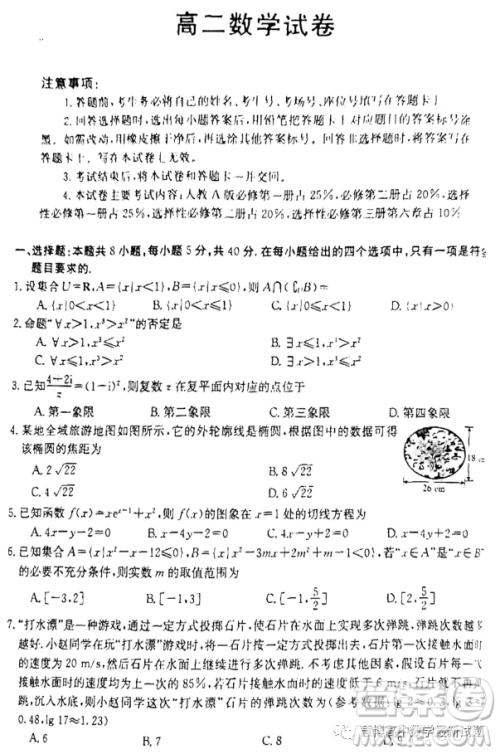 高二数学试卷
注意事项:
1.答题前,考生务必将自己的姓名、考生号、考场号、座位号填写在答题卡上
2.回答选择题时,选出每小题答案后,用铅笔把答题卡对应题目的答案标号涂
黑。如需改动,用橡皮擦干净后,再选涂其他答案标号。回答非选择题时,将答案写在
答题卡上。写在本试卷上无效。
3.考试结束后,将本试卷和答题卡一并交回。
4.本试卷主要考试内容:人教A版必修第一册占25%,必修第二册占20%,选择性
必修第一册占25%,选择性必修第二册占20%,选择性必修第三册第六章占10%
一、选择题:本题共8小题,每小题5分,共40分.在每小题给出的四个选项中,只有一项是符合
题目要求的.
1.设集合U=R,A={x|x<1},B={x|x≤0},则A∩(∁UB)=
A.{x|0<x<1} B.{x|0≤x<1} C.{x|x<1} D.{x|x>0}
2.命题“∀x>1,x³>x²”的否定是
A.∀x>1,x³≤x² B.∃x≤1,x³≤x²
C.∀x≤1,x³>x² D.∃x>1,x³≤x²
3.已知(4+2i)/z=(1-i)²,则复数z在复平面内对应的点位于
A.第一象限 B.第二象限 C.第三象限 D.第四象限
4.某地全域旅游地图如图所示,它的外轮廓线是椭圆,根据图中的数据可得
该椭圆的焦距为
A.2√22 B.8√22
C.4√22 D.6√22
18 c
26 cm
5.已知函数f(x)=xeˣ⁻¹+x²,则f(x)的图象在x=1处的切线方程为
A.4x-y-2=0 B.4x+y-2=0 C.4x-y+2=0 D.4x+y+2=0
6.已知集合A={x|x²-x-12≤0},B={x|x²-3mx+2m²+m-1<0},若“x∈A”是“x∈B”
的必要不充分条件,则实数m的取值范围为
A.[-3,2] B.[-1,3] C.[-1,5/2] D.[2,5/2]
7.“打水漂”是一种游戏,通过一定方式投掷石片,使石片在水面上实现多次弹跳,弹跳次数多
越好.小赵同学在玩“打水漂”游戏时,将一石片按一定方式投掷出去,石片第一次接触水面时
的速度为20 m/s,然后石片在水面上继续进行多次弹跳.不考虑其他因素,假设石片每一次
接触水面时的速度均为上一次的85%,若石片接触水面时的速度低于
跳,沉入水底,则小赵同学这次“打水漂”石片的弹跳次数为(参考数据:lg 2≈0.3,lg 3≈
0.48,lg 17≈1.23)
A.6 B.7 C.8 D.9